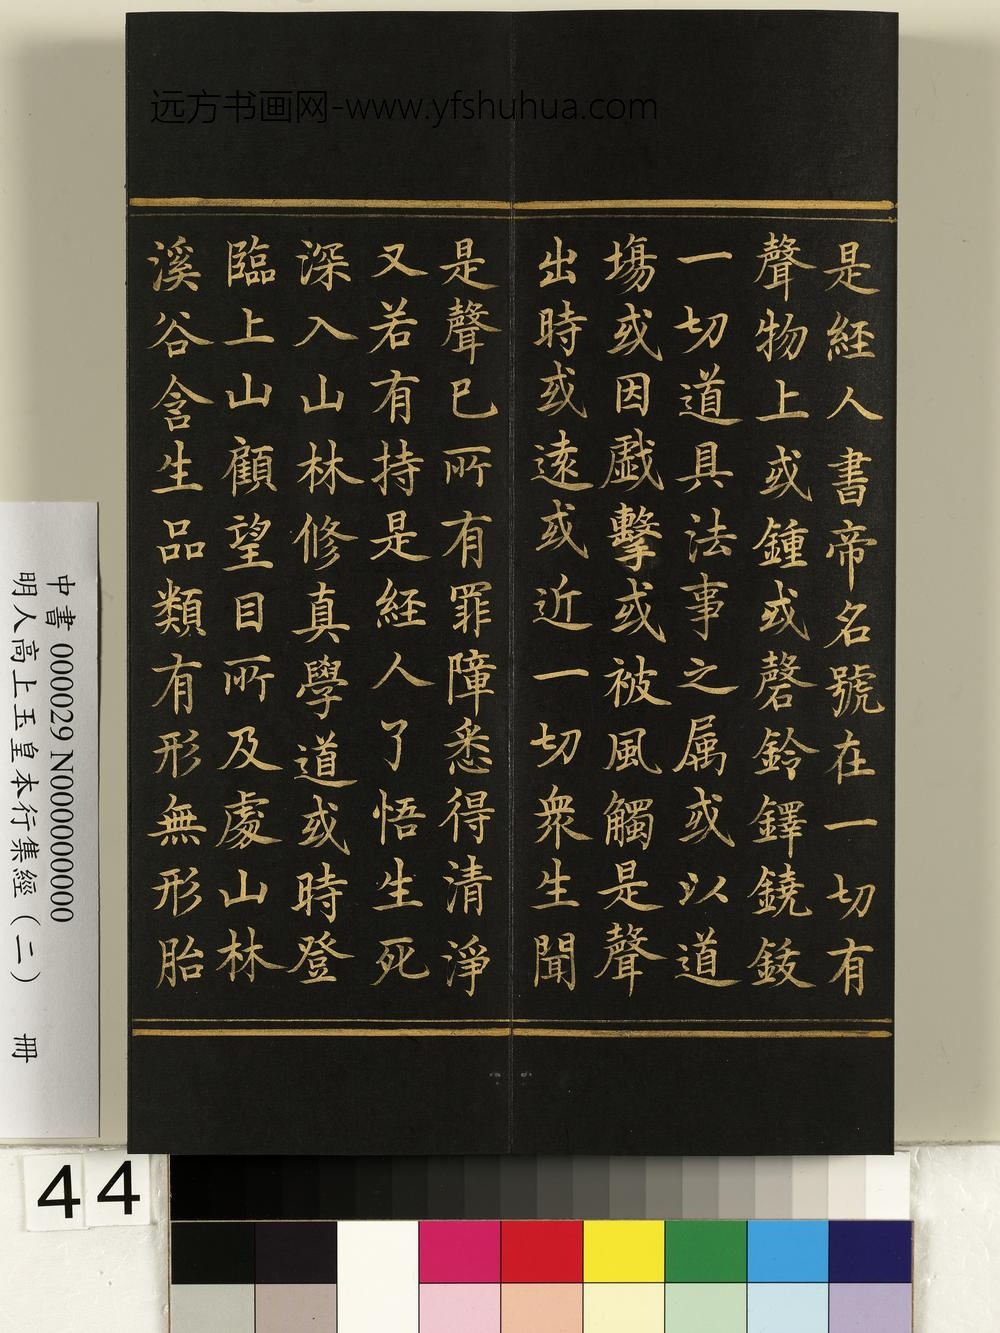 远方书画网-www.yfshuhua.com
是經人書帝名號在一切有
聲物上或鍾或磬鈴鐸鐃鈸
一切道具法事之属或以道
塲或因戯擊或被風觸是聲
出時或遠或近一切衆生聞
是聲已所有罪障悉得清淨
又若有持是經人了悟生死
深入山林修真學道或時登
臨上山顧望目所及處山林
溪谷含生品類有形無形胎
中書 000029 N000000000
明人高上玉皇本行集經（二） 冊
44